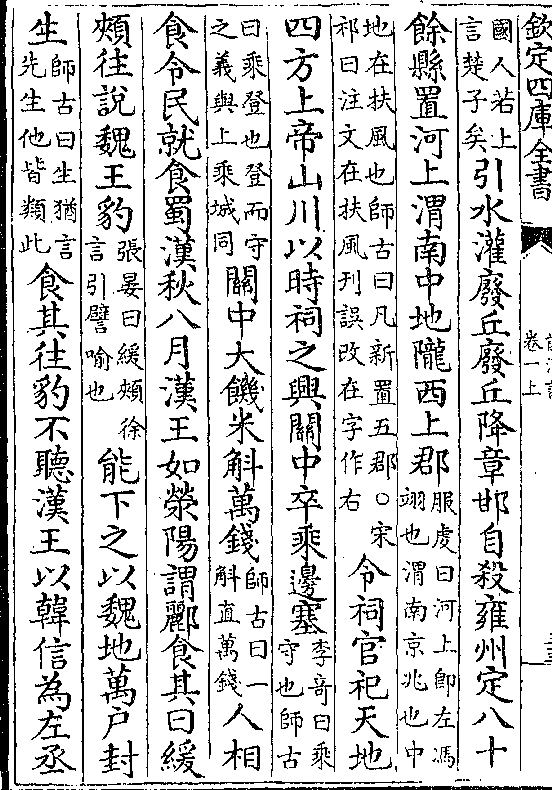 欽定四庫全書
卷一上
國人若上
言楚子矣
引水灌廢丘廢丘降章邯自殺雍州定八十
餘縣置河上渭南中地隴西上郡
服虔曰河上即左馮
翊也渭南京兆也中
地在扶風也師古曰凡新置五郡○宋
祁曰注文在扶風刊誤改在字作右
令祠官祀天地
四方上帝山川以時祠之興關中卒乘邊塞
李奇曰乘
守也師古
曰乘登也登而守
之義與上乘城同
關中大饑米斛萬錢
師古曰一
斛直萬錢
人相
食令民就食蜀漢秋八月漢王如滎陽謂酈食其曰緩
頰往說魏王豹
張晏曰緩頰徐
言引譬喻也
能下之以魏地萬户封
生
師古曰生猶言
先生他皆類此
食其往豹不聽漢王以韓信為左丞